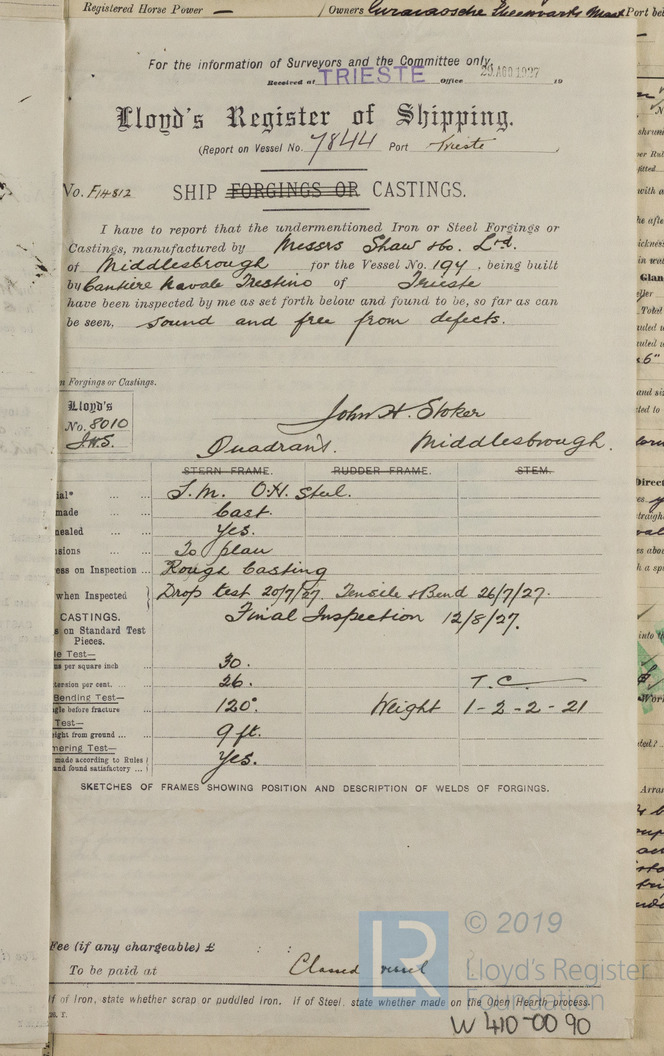 Registered Horse Power — Owners Curacaosche Port be
For the information of Surveyors and the Committee only.
Received at TRIESTE Office 29 AGO 1927 19
Lloyd's Register of Shipping.
(Report on Vessel No. 7844 Port Trieste
No. F14812 SHIP FORGINGS OR CASTINGS.
I have to report that the undermentioned Iron or Steel Forgings or
Castings, manufactured by Messrs Shaw & Co. Ltd.
of Middlesbrough for the Vessel No. 194, being built
by Cantiere Navale Trestino of Trieste
have been inspected by me as set forth below and found to be, so far as can
be seen, sound and free from defects.
n Forgings or Castings.
Lloyd's
No. 8010
J.H.S.
John H. Stoker
Quadrant. Middlesbrough.
STERN FRAME. RUDDER FRAME. STEM.
ial* ... ... S.M. O.H. Steel.
made ... ... Cast.
nealed ... ... Yes.
sions ... ... To plan
ess on Inspection ... Rough Casting
when Inspected Drop test 20/7/27. Tensile & Bend 26/7/27.
Final Inspection 12/8/27.
CASTINGS.
s on Standard Test
Pieces.
le Test—
ns per square inch ... 30.
tension per cent. ... 26. T.C.
Bending Test—
gle before fracture 120°. Weight 1-2-2-21
Test—
eight from ground ... 9 ft.
mering Test—
made according to Rules
and found satisfactory ... Yes.
SKETCHES OF FRAMES SHOWING POSITION AND DESCRIPTION OF WELDS OF FORGINGS.
Fee (if any chargeable) £ : :
To be paid at Classed vessel
If of Iron, state whether scrap or puddled Iron. If of Steel, state whether made on the Open Hearth process.
LR
© 2019
Lloyd's Register
Foundation
W410-0090